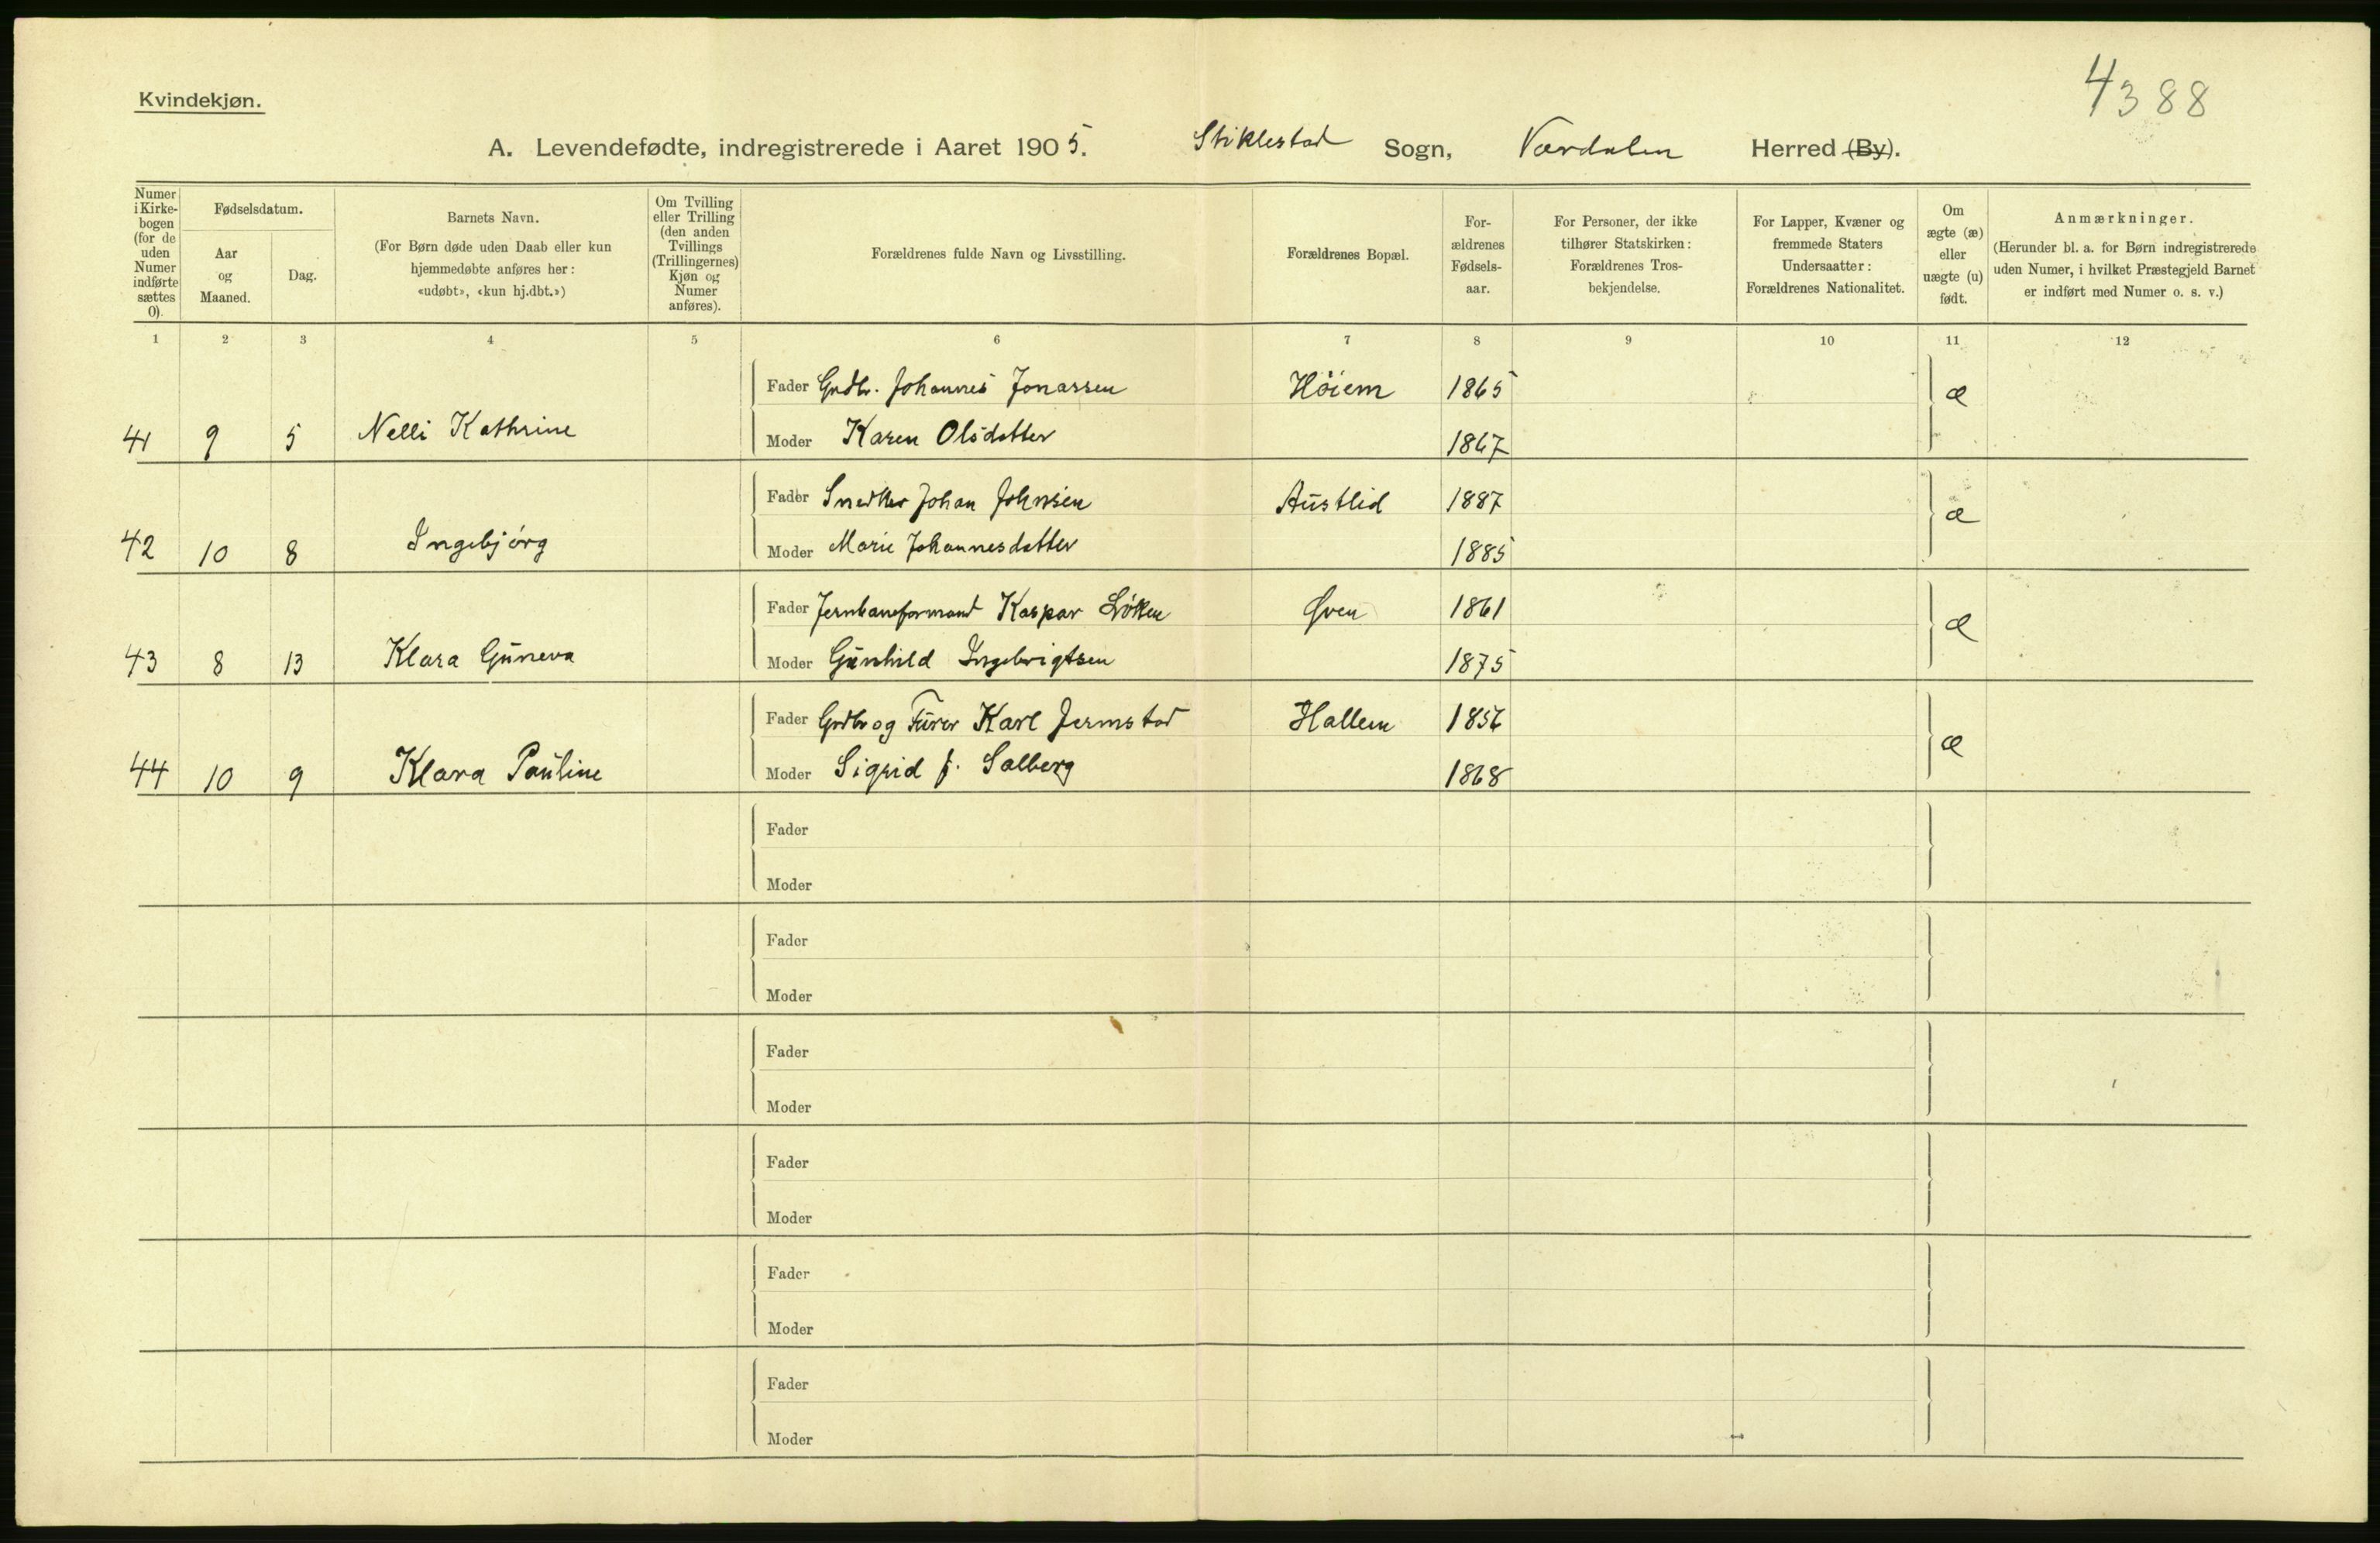 4388
Kvindekjøn.
A. Levendefødte, indregistrerede i Aaret 1905. Stiklestad Sogn, Værdalen Herred (By).
Numer i Kirke-bogen (for de uden Numer indførte sættes 0).
Fødselsdatum.
Aar og Maaned.
Dag.
Barnets Navn.
(For Børn døde uden Daab eller kun hjemmedøbte anføres her: «udøbt», «kun hj.dbt.»)
Om Tvilling eller Trilling (den anden Tvillings (Trillingernes) Kjøn og Numer anføres).
Forældrenes fulde Navn og Livsstilling.
Forældrenes Bopæl.
For-ældrenes Fødsels-aar.
For Personer, der ikke tilhører Statskirken: Forældrenes Tros-bekjendelse.
For Lapper, Kvæner og fremmede Staters Undersaatter: Forældrenes Nationalitet.
Om ægte (æ) eller uægte (u) født.
Anmærkninger.
(Herunder bl. a. for Børn indregistrerede uden Numer, i hvilket Præstegjeld Barnet er indført med Numer o. s. v.)
1 2 3 4 5 6 7 8 9 10 11 12
Fader Grdbr. Johannes Jonassen Höiem 1865 æ
41 9 5 Nelli Kathrine Moder Karen Olsdatter 1867
Fader Snedker Johan Johnsen Austlid 1887 æ
42 10 8 Ingebjörg Moder Marie Johannesdatter 1885
Fader Jernbaneformand Kaspar Löken Øven 1861 æ
43 8 13 Klara Guneva Moder Gunhild Ingebrigtsen 1875
Fader Grdbr og Furer Karl Jermstad Hallem 1856 æ
44 10 9 Klara Pauline Moder Sigrid f. Salberg 1868
Fader
Moder
Fader
Moder
Fader
Moder
Fader
Moder
Fader
Moder
Fader
Moder